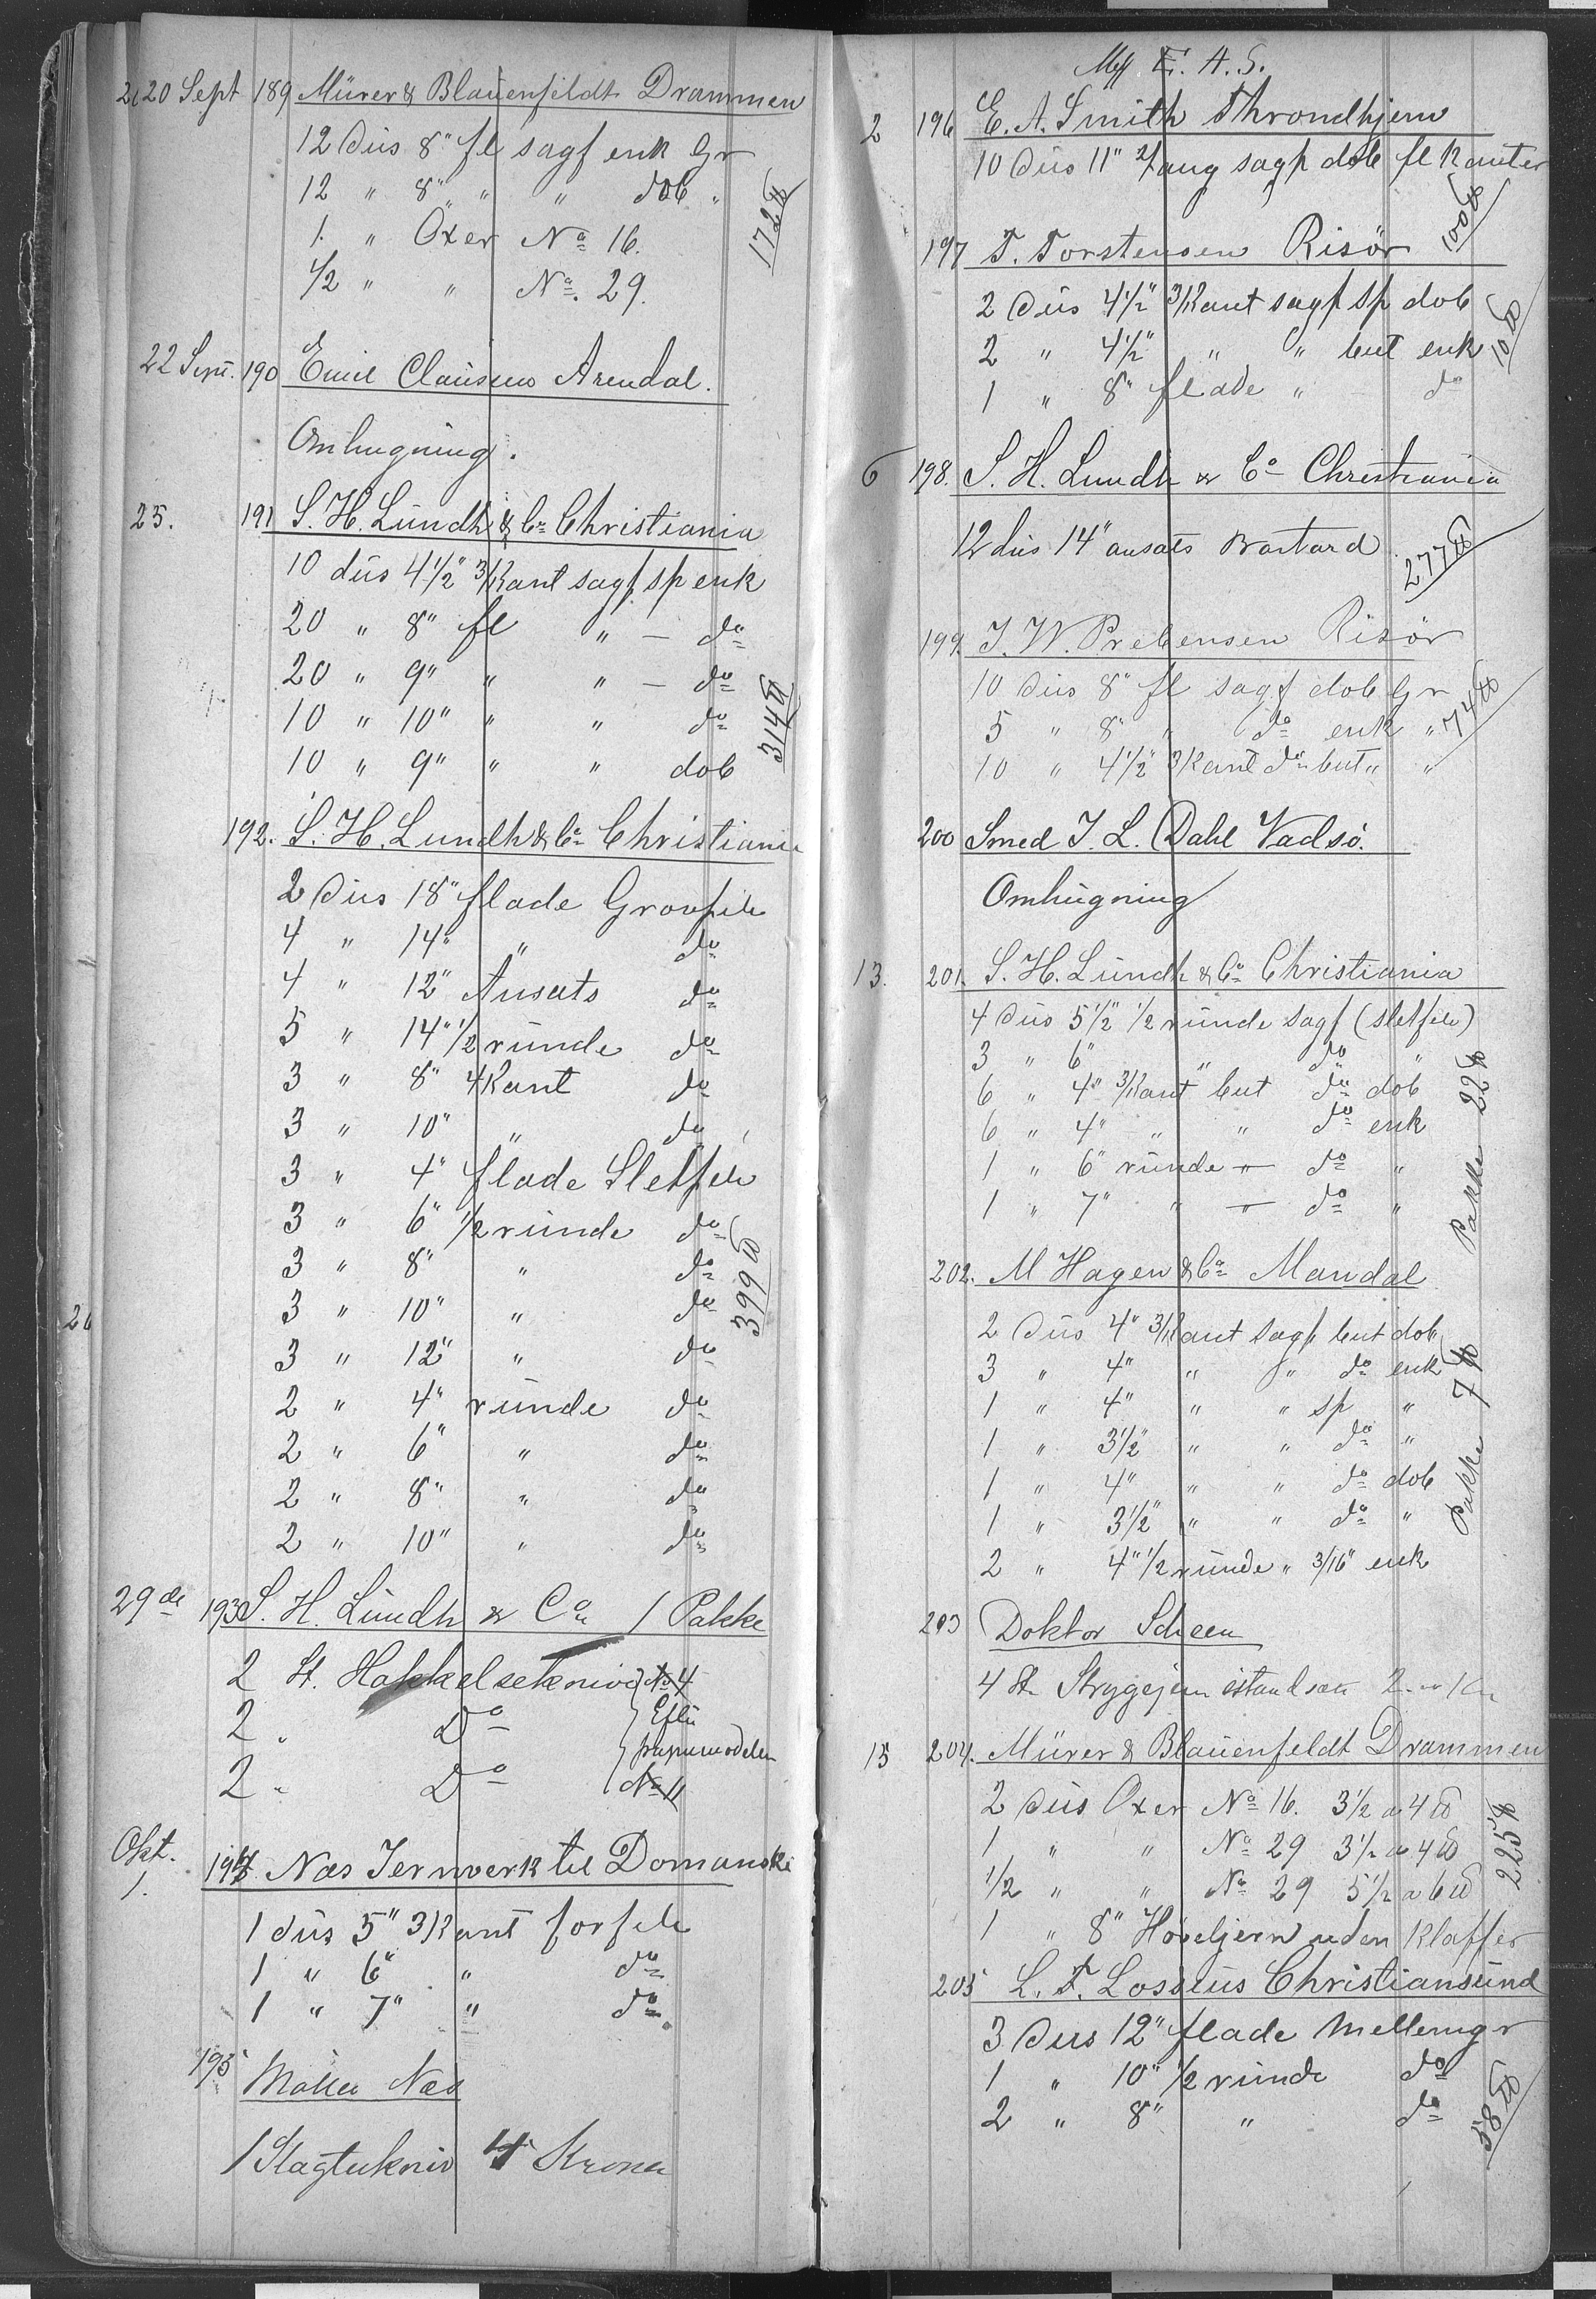 20 Sept 189 Mürer & Blauenfeldt Drammen
12 Dus 8" fl sagf enk Gr
12 " 8" " " dob "
1. " Oxer No 16.
1/2 " " No. 29.
172 ℔
22 Sept. 190 Emil Clausen Arendal.
Omhugning.
25. 191 S. H. Lündh & Co Christiania
10 düs 4 1/2" 3/Kant sagf sp enk
20 " 8" fl " — do
20 " 9" " " — do
10 " 10" " " do
10 " 9" " " dob
314 ℔
192. S. H. Lundh & Co Christiania
2 Düs 18" flade Grovfile
4 " 14" " do
4 " 12" Ansats do
5 " 14" 1/2 runde do
3 " 8" 4Kant do
3 " 10" " do
3 " 4" flade Sletfile
3 " 6" 1/2 runde do
3 " 8" " do
3 " 10" " do
3 " 12" " do
2 " 4" runde do
2 " 6" " do
2 " 8" " do
2 " 10" " do
399 ℔
29de 193 S. H. Lündh & Co 1 Pakke
2 St. Hakkelseknive No 4
2 " Do Efter
papirmodeller
2 " Do No 11
Okt.
1. 194 Næs Jernverk til Domanski
1 düs 5" 3Kant forfile
1 " 6" " do
1 " 7" " do
195 Møller Næs
1 Slagtekniv 4 Kroner
E. A. S.
2 196 E. A. Smith Throndhjem
10 Düs 11" sagf dob fl Kanter
100 ℔
197 T. Torstensen Risör
2 Düs 4 1/2" 3/Kant sagf sp dob
2 " 4 1/2" " " but enk
1 " 8" flade " do
10 ℔
6 198. S. H. Lundh & Co Christiania
12 dus 14" ansats Bastard
277 ℔
199. J. W. Prebensen Risör
10 Düs 8" fl sagf dob Gr
5 " 8" " do enk "
10 " 4 1/2" 3Kant do but " "
74 ℔
200 Smed J. L. Dahl Vadsö.
Omhügning
13. 201. S. H. Lündh & Co Christiania
4 Düs 5 1/2" 1/2 runde sagf (sletfile)
3 " 6" " do "
6 " 4" 3/Kant but do dob
6 " 4" " " do enk
1 " 6" runde " do "
1 " 7" " " do "
Pakke 22 ℔
202. M Hagen & Co Mandal
2 Düs 4" 3/Kant sagf but dob
3 " 4" " " do enk
1 " 4" " " sp "
1 " 3 1/2" " " do "
1 " 4" " " do dob
1 " 3 1/2" " " do "
2 " 4" 1/2 runde " 3/16" enk
Pakke 7 ℔
203 Doktor Scheen
4 St. Strygejern
15 204. Mürer & Blauenfeldt Drammen
2 Düs Oxer No 16. 3 1/2 a 4 ℔
1 " " No 29 3 1/2 a 4 ℔
1/2 " " No 29 5 1/2 a 6 ℔
1 " 8" Høveljern uden Klaffer
225 ℔
205 L. F. Lossius Christiansünd
3 Dus 12" flade Mellemgr
1 " 10" 1/2 runde do
2 " 8" " do
58 ℔